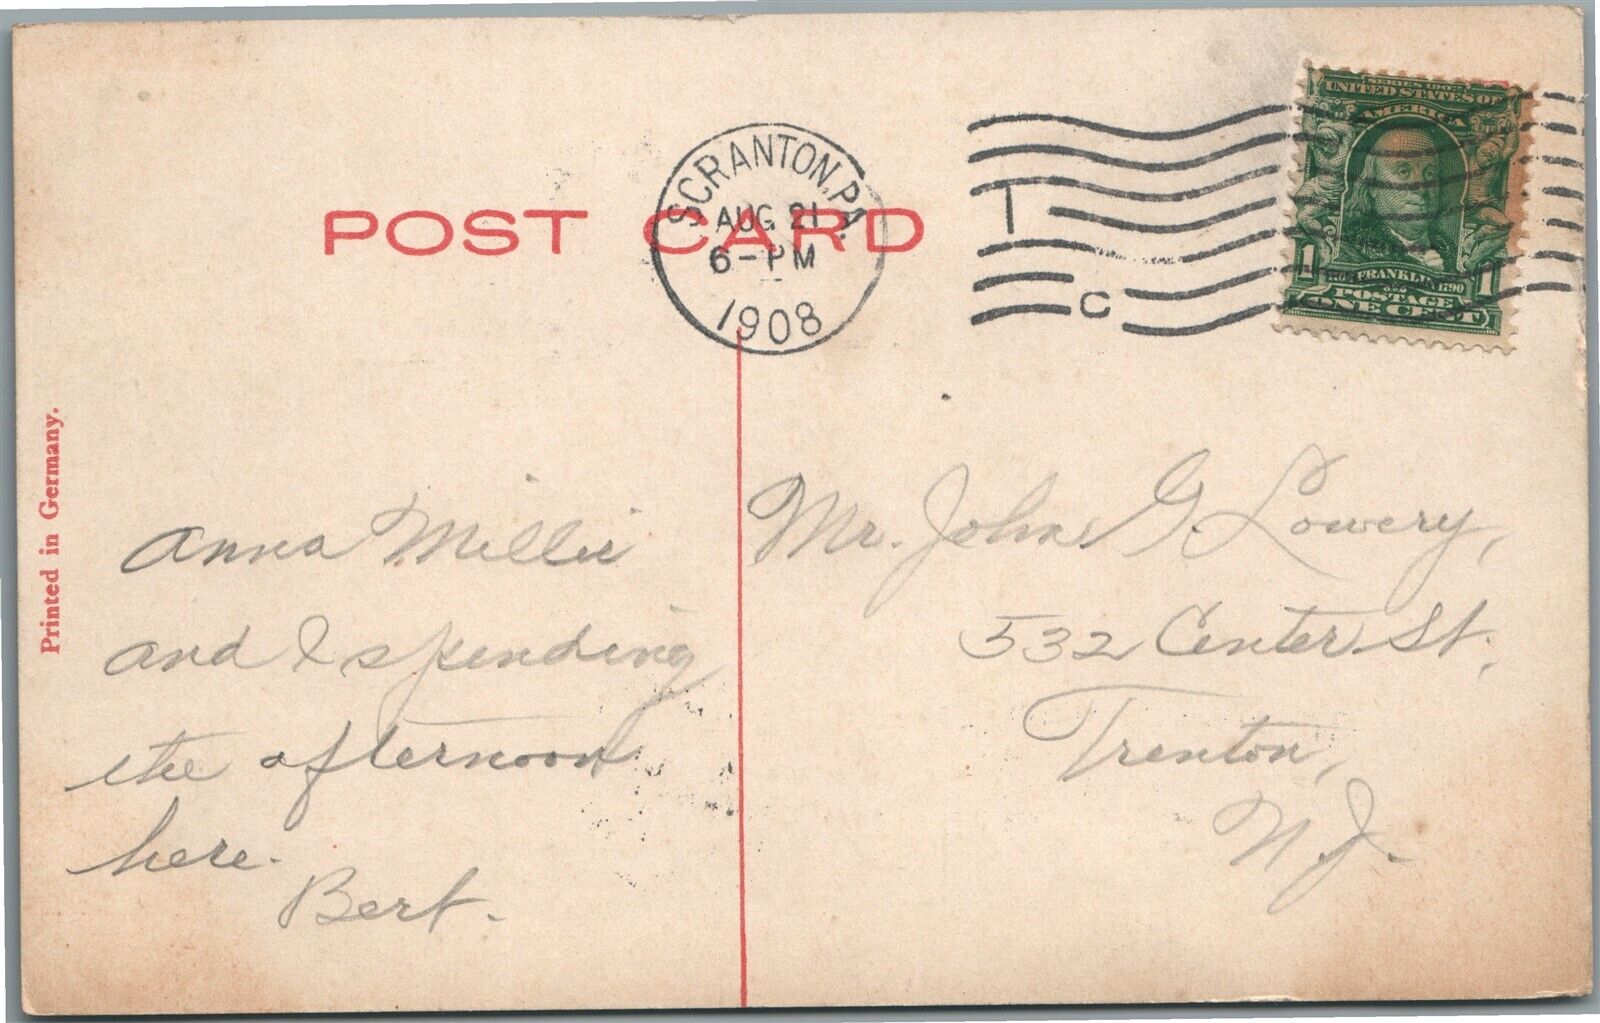 POST CARD
SCRANTON, PA.
AUG 21
6-PM
1908
T
C
SERIES 1902
UNITED STATES OF
AMERICA
1 FRANKLIN 1790 1
POSTAGE
ONE CENT
Printed in Germany.
Anna Millie
and I spending
the afternoon
here.
Bert.
Mr. John G. Lowery,
532 Center St.,
Trenton,
N.J.